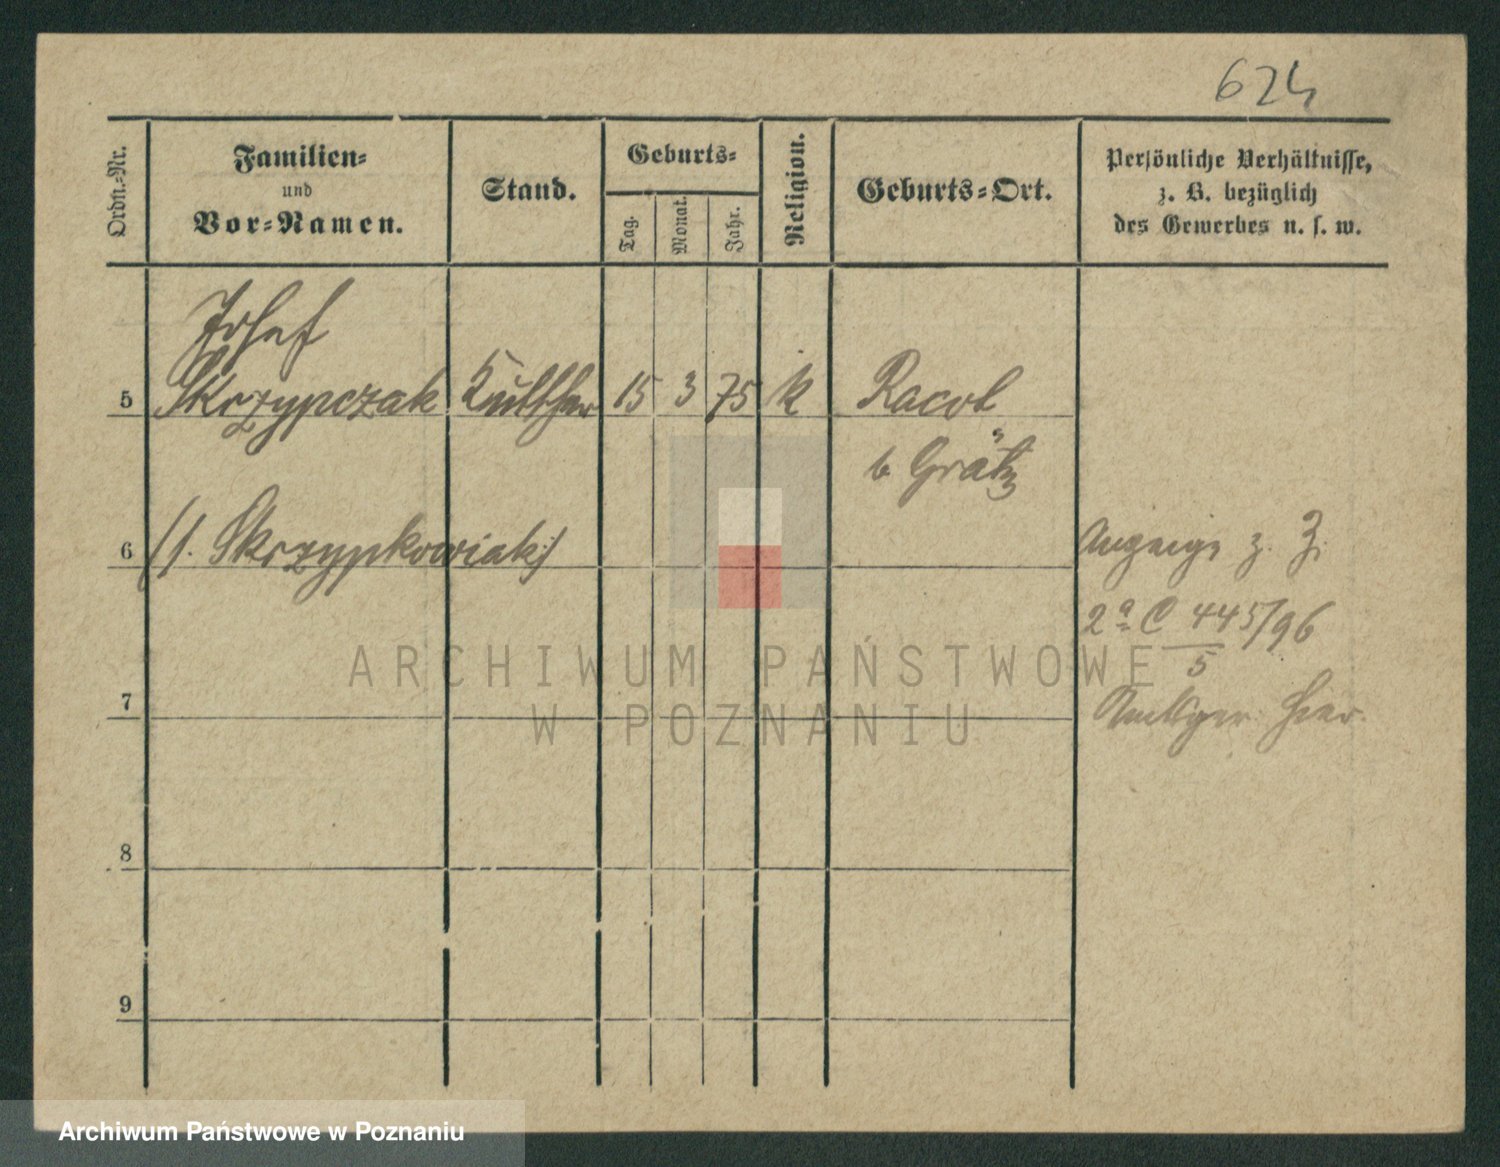 624
Ordn.-Nr.
Familien-
und
Vor-Namen.
Stand.
Geburts-
Tag.
Monat.
Jahr.
Religion.
Geburts-Ort.
Persönliche Verhältnisse,
z. B. bezüglich
des Gewerbes u. s. w.
Josef
5 Skrzypczak 15 3 75 k Racot
b Grätz
6 (s. Skrzypkowiak)
Anzeige z. Z.
2a C 445/96
5
7 Amtsger hier.
8
9
ARCHIWUM PAŃSTWOWE
W POZNANIU
Archiwum Państwowe w Poznaniu